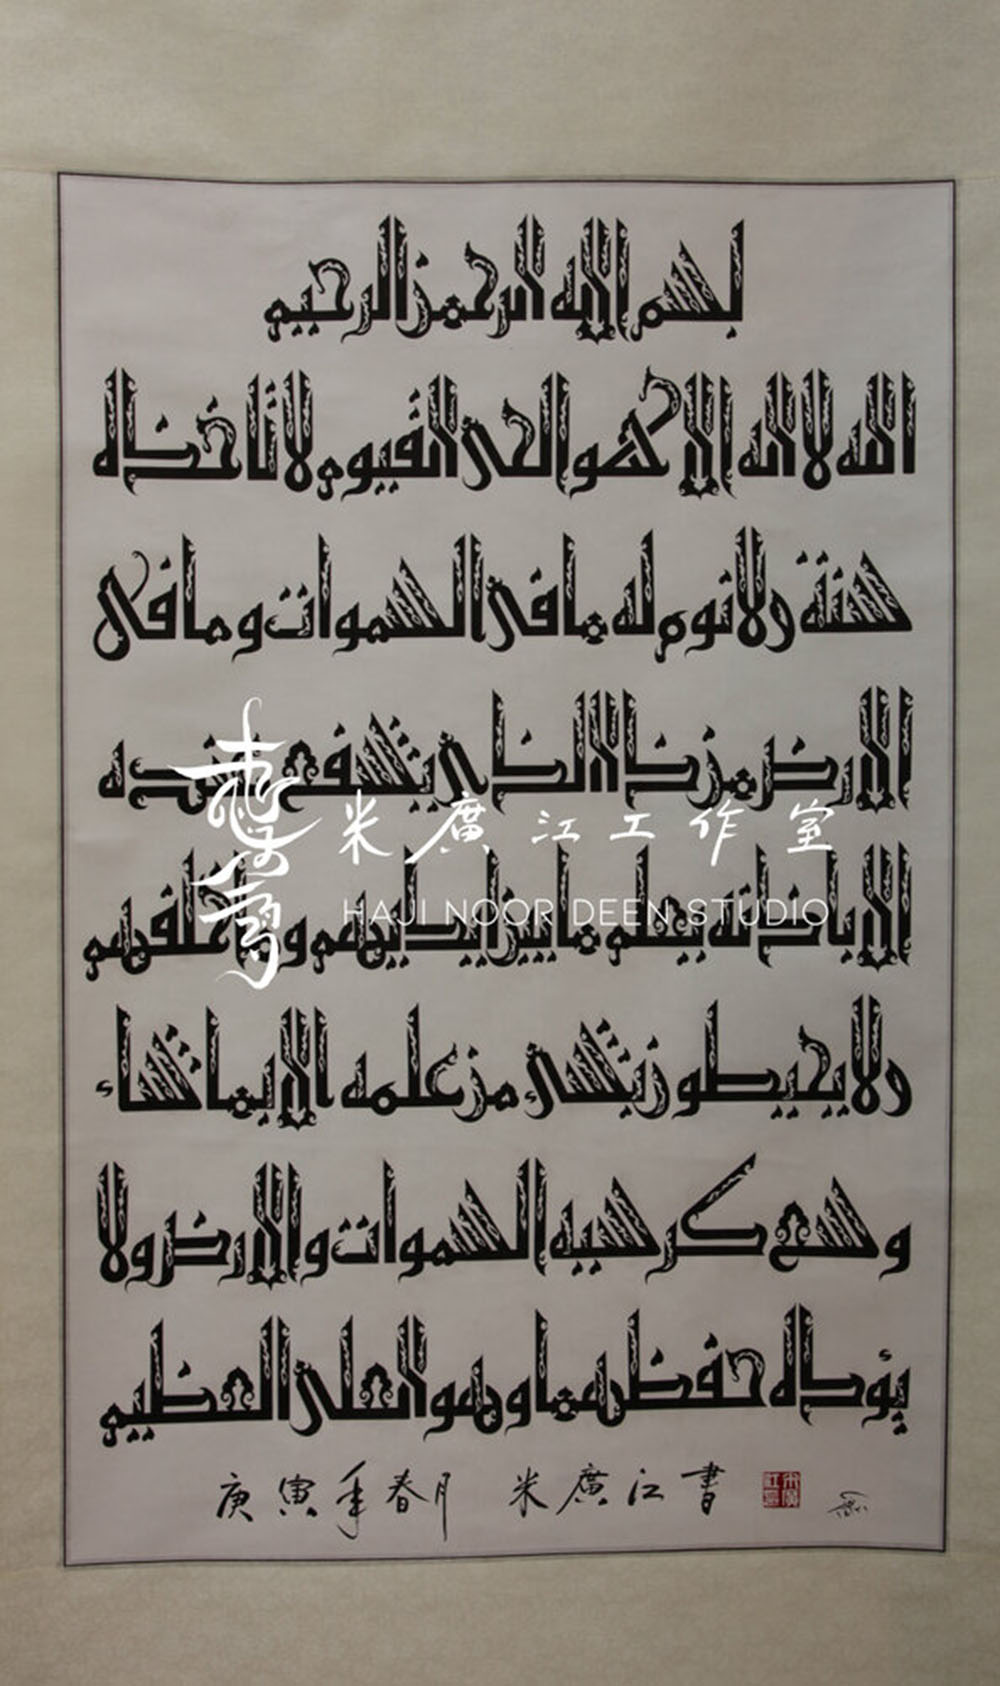 بسم الله الرحمن الرحيم
الله لا اله الا هو الحى القيوم لا تاخذه
سنة ولا نوم له ما فى السموات وما فى
الارض من ذا الذى يشفع عنده
الا باذنه يعلم ما بين ايديهم وما خلفهم
ولا يحيطون بشىء من علمه الا بما شاء
وسع كرسيه السموات والارض ولا
يؤده حفظهما وهو العلى العظيم
庚寅年春月 米廣江書
米廣江工作室
HAJI NOOR DEEN STUDIO